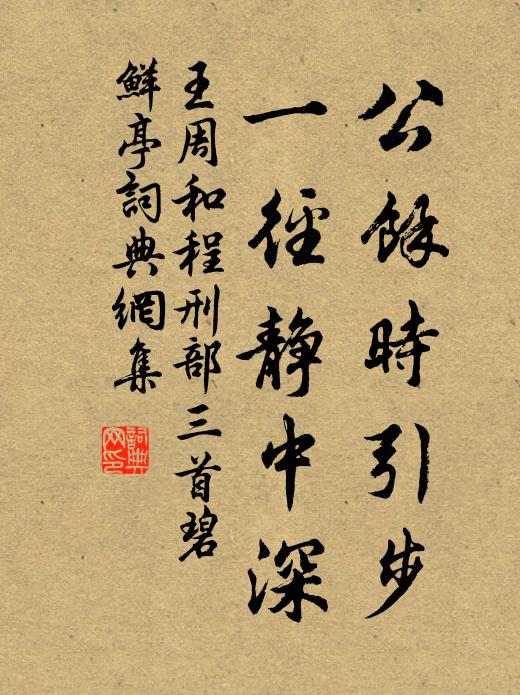 公餘時引步
一徑靜中深
王周和程刑部三首碧
鮮亭詞典網集
詞典
网印